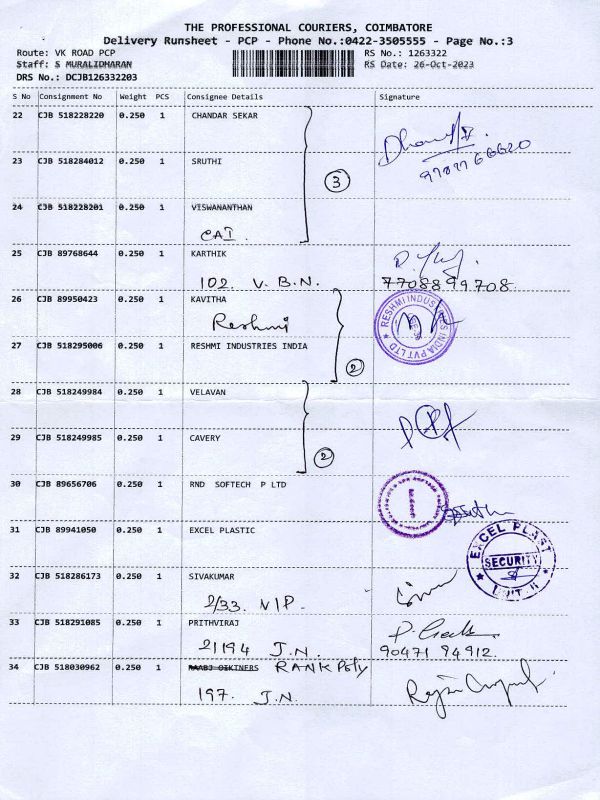 THE PROFESSIONAL COURIERS, COIMBATORE
Delivery Runsheet - PCP - Phone No.:0422-3505555 - Page No.:3
Route: VK ROAD PCP RS No.: 1263322
Staff: S MURALIDHARAN RS Date: 26-Oct-2023
DRS No.: DCJB126332203
S No Consignment No Weight PCS Consignee Details Signature
22 CJB 518228220 0.250 1 CHANDAR SEKAR
23 CJB 518284012 0.250 1 SRUTHI
9787766620
3
24 CJB 518228201 0.250 1 VISWANANTHAN
CAI
25 CJB 89768644 0.250 1 KARTHIK
102. V. B. N. 7708899708
26 CJB 89950423 0.250 1 KAVITHA
Reshmi
RESHMI INDUSTRIES INDIA PVT LTD
27 CJB 518295006 0.250 1 RESHMI INDUSTRIES INDIA
2
28 CJB 518249984 0.250 1 VELAVAN
29 CJB 518249985 0.250 1 CAVERY
2
30 CJB 89656706 0.250 1 RND SOFTECH P LTD
31 CJB 89941050 0.250 1 EXCEL PLASTIC
EXCEL PLAST
SECURITY
UNIT-II
32 CJB 518286173 0.250 1 SIVAKUMAR
2/33. NIP.
33 CJB 518291085 0.250 1 PRITHVIRAJ
2/194 J.N. 90471 94912.
34 CJB 518030962 0.250 1 RANK Poly
197. J.N.